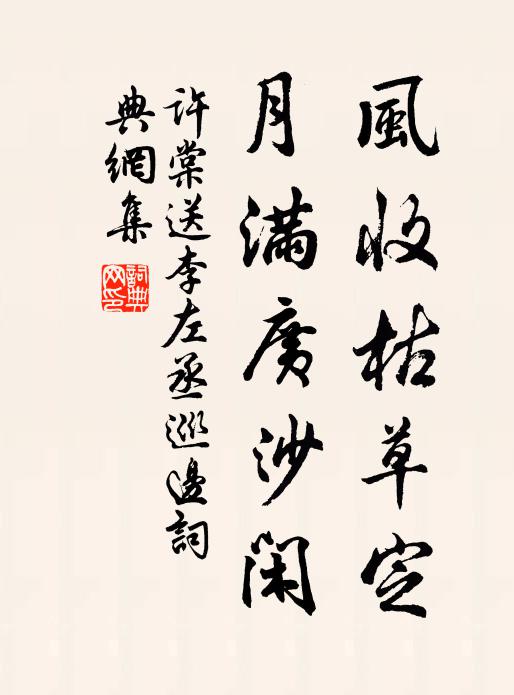 風收枯草定
月滿廣沙閑
許棠送李左丞巡邊詞
典網集
詞典網印